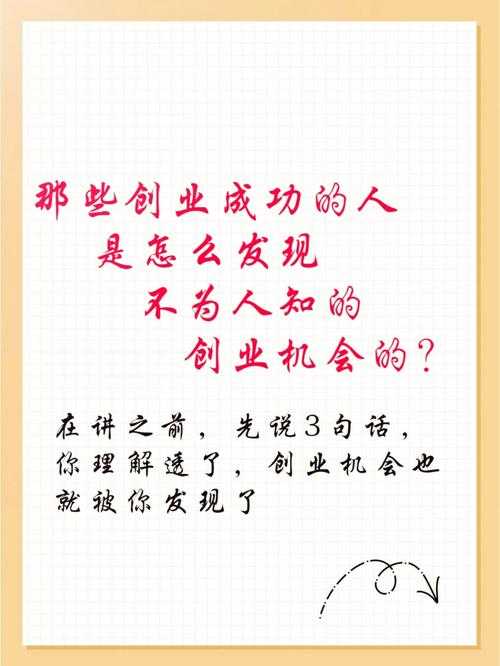 那些创业成功的人
是怎么发现
不为人知的
创业机会的?
在讲之前，先说3句话，
你理解透了，创业机会也
就被你发现了